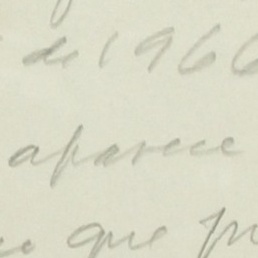 de 1966
aparece
que